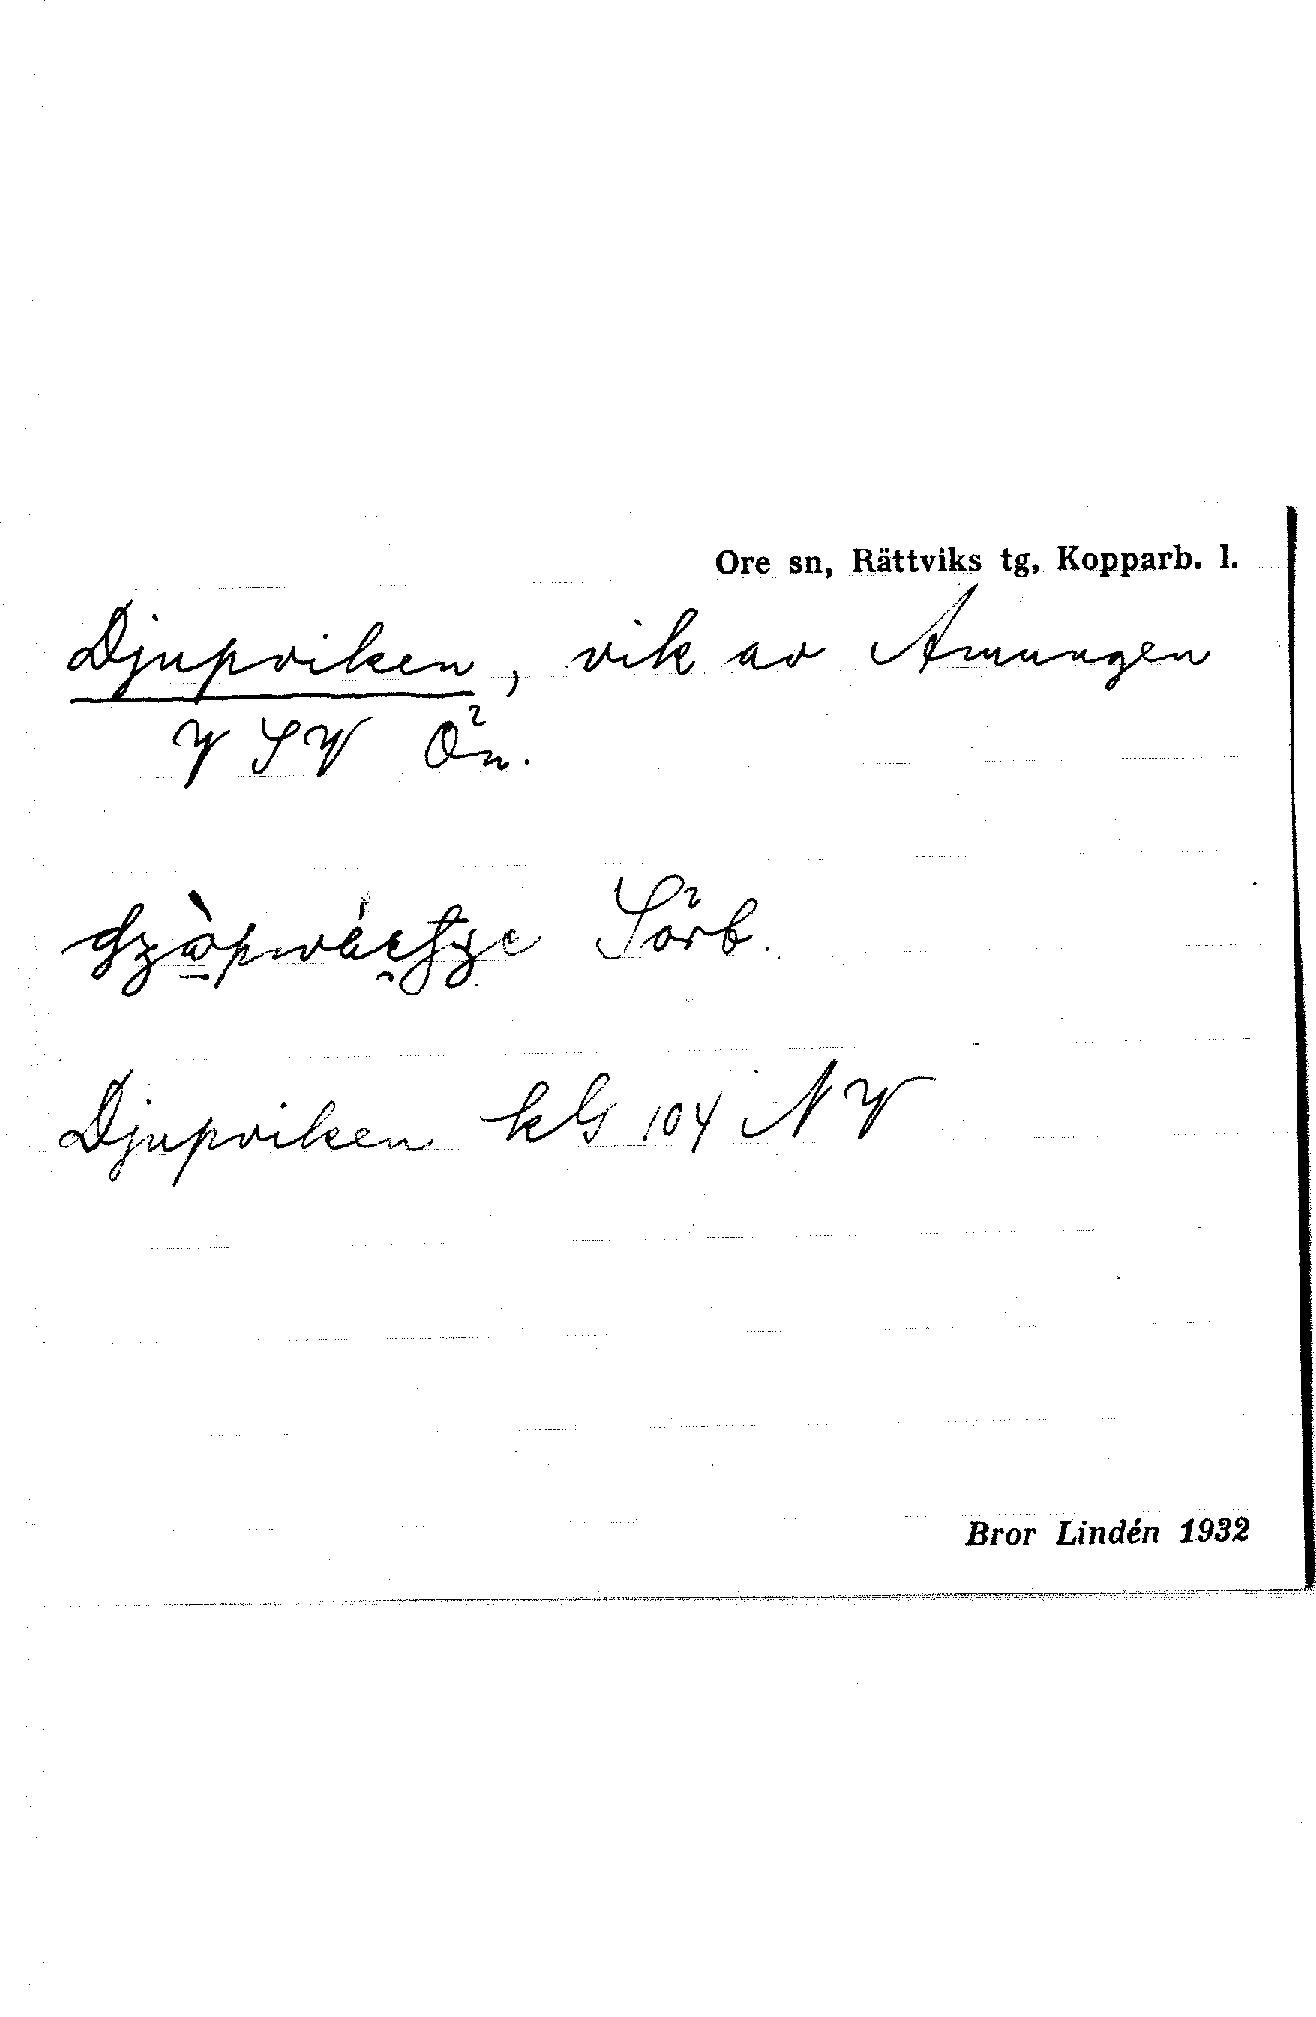 Ore sn, Rättviks tg, Kopparb. l.
Djupviken, vik av Amungen
V SV Ön.
Sörb.
Djupviken kG 104 NV
Bror Lindén 1932